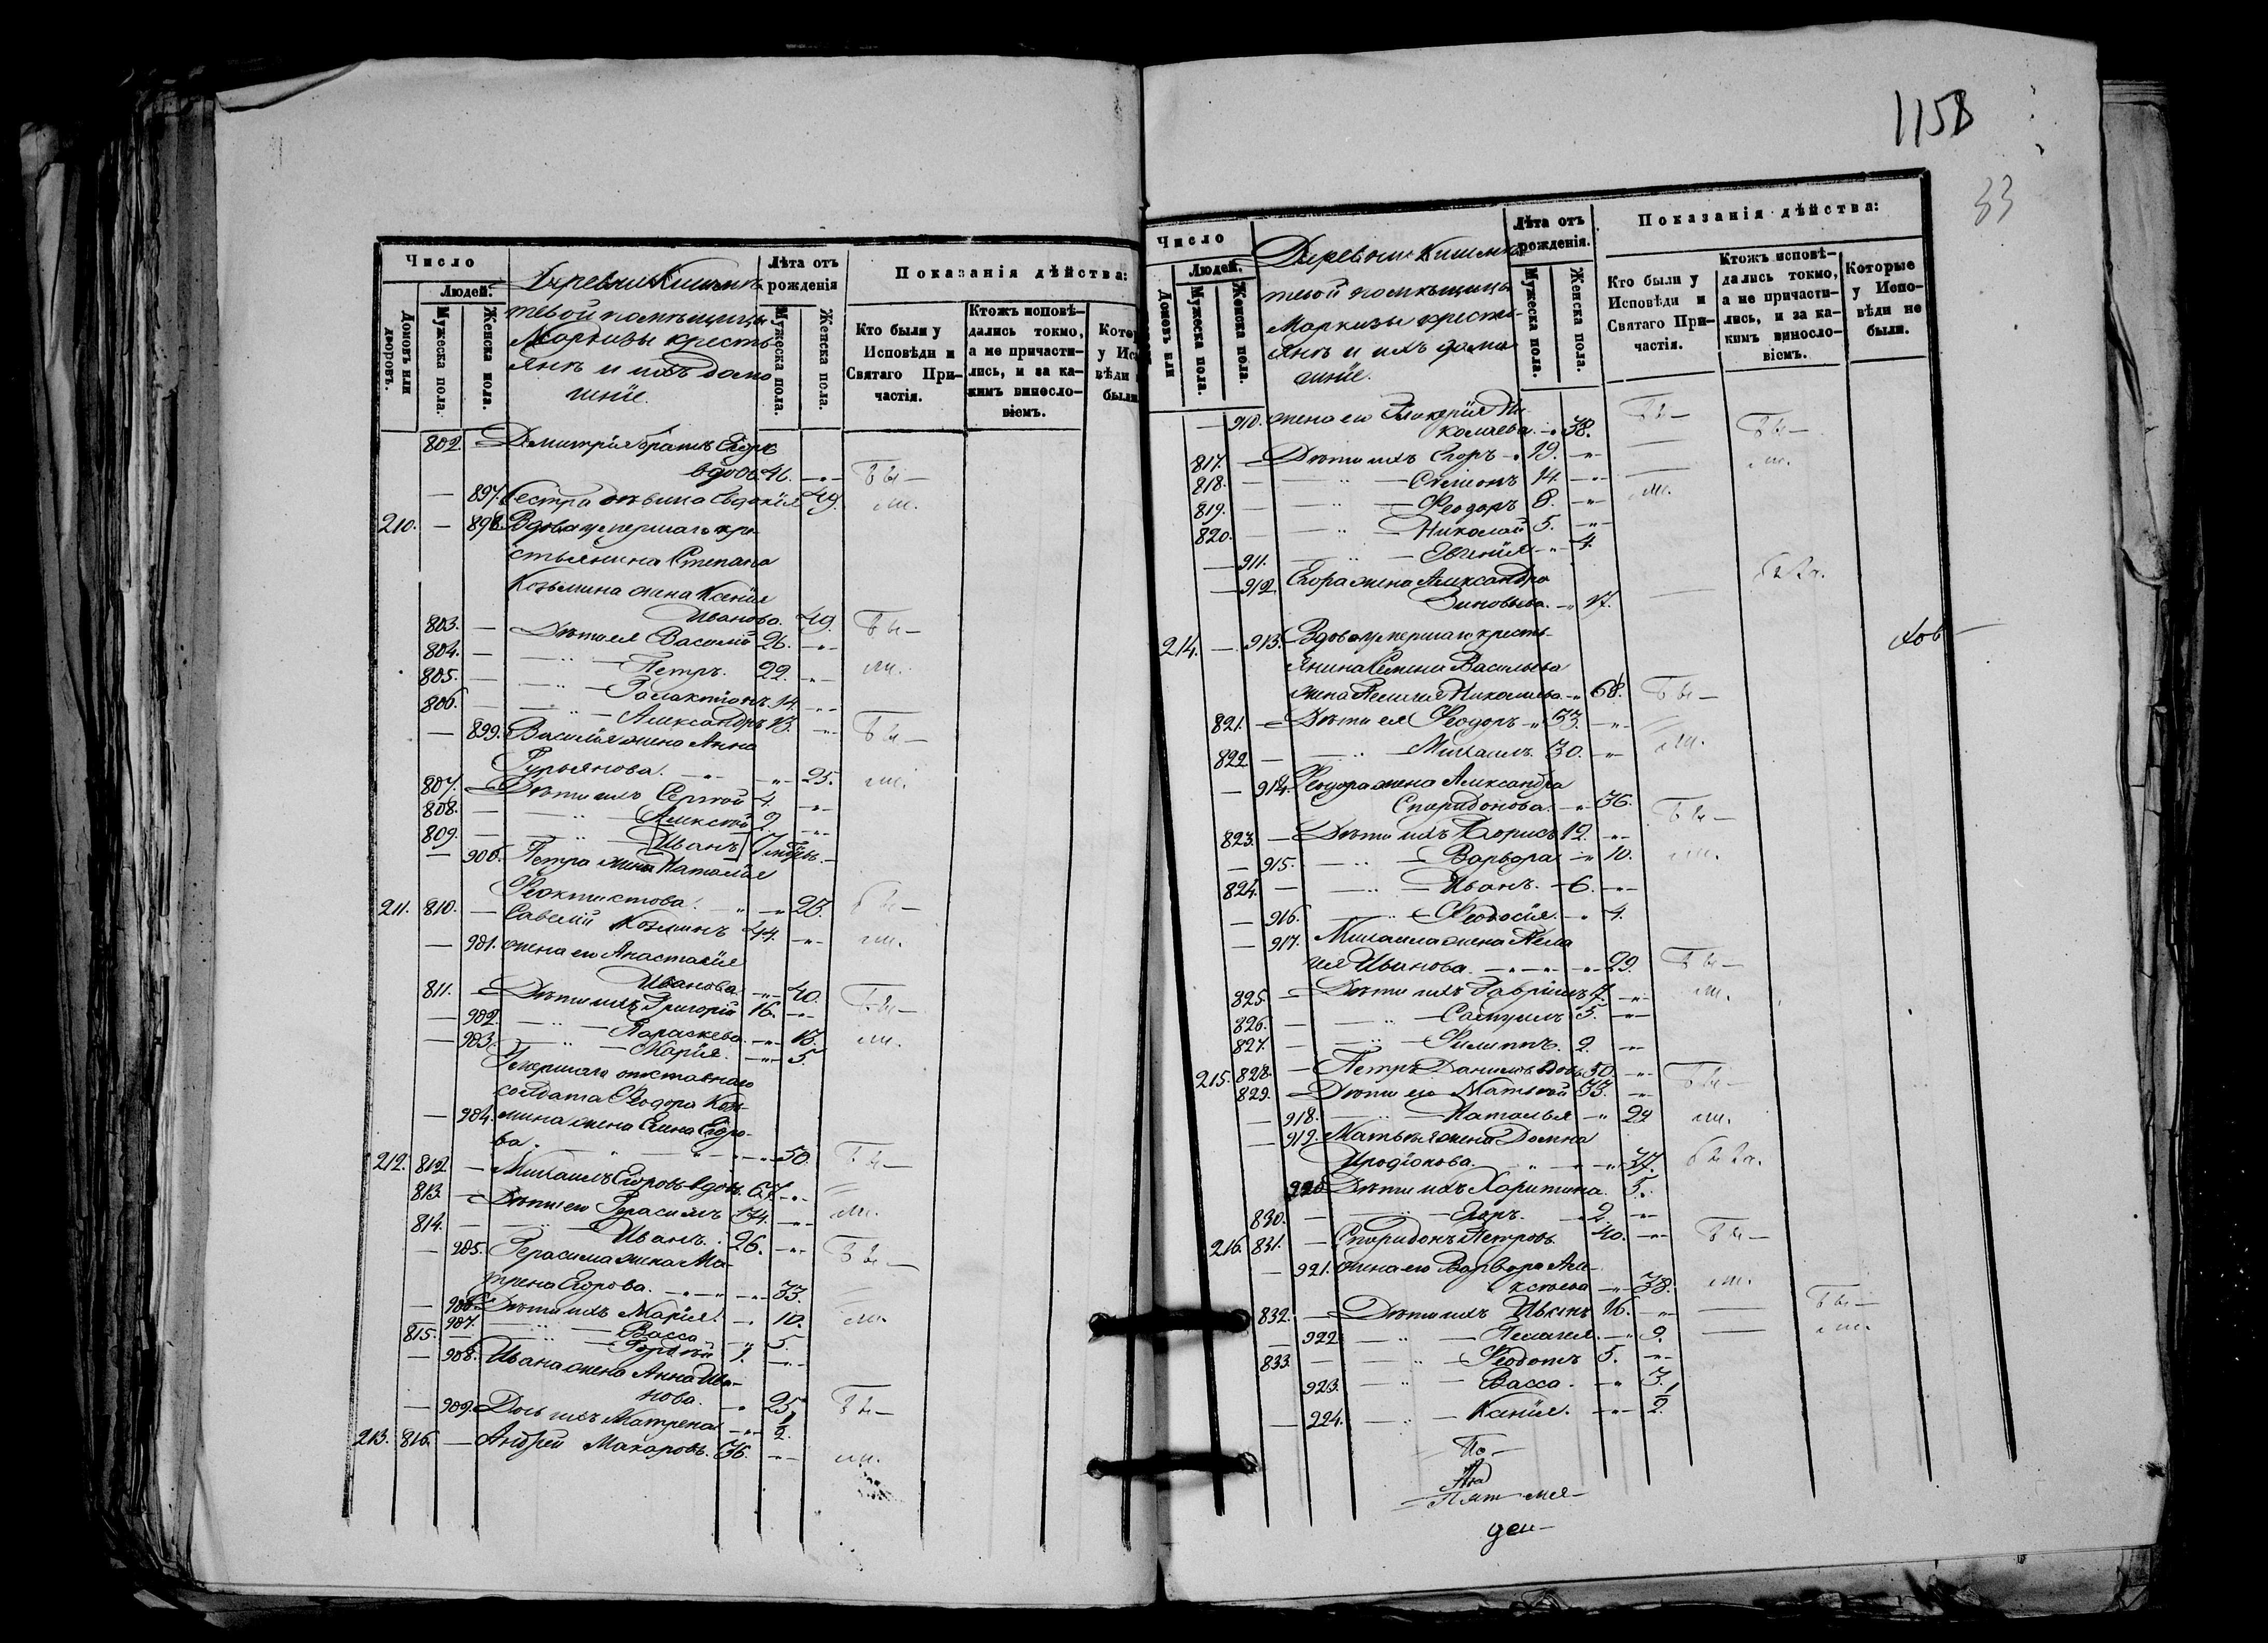 Число
Людей.
Домовъ или дворовъ.
Мужеска пола.
Женска пола.
Деревни
помѣщицы
Маркизы кресть
янъ и ихъ дома
шніе.
Лѣта отъ рожденія
Мужеска пола.
Женска пола.
Показанія дѣйства:
Кто были у Исповѣди и Святаго Причастія.
Ктожъ исповѣдались токмо, а не причастились, и за какимъ винословіемъ.
802. — Димитрія братъ Егоръ
вдовъ 46. —„— бы—
— 897. Сестра дѣвица Евдокія 49. ли.
210. — 898. Вдова умершаго кре
стьянина Степана
Козьмина жена Ксенія
Иванова. 49. бы—
803. — Дѣти ея Василій 26. —„—
804. — —„— Петръ. 22. —„— ли.
805. — —„— Галактіонъ 14. —„—
806. — —„— Александръ 13. —„—
— 899. Василія жена Анна бы—
Гурьянова. —„— 25. ли.
807. — Дѣти ихъ Сергѣй 4. —„—
808. — —„— Алексѣй 2. —„—
809. — —„— Иванъ
— 900. Петра жена Наталія
Феоктистова. „ —„— 23. бы—
211. 810. — Савелій Козминъ 44. —„— ли.
— 901. жена его Анастасія
Иванова. —„— 40. бы—
811. — Дѣти ихъ Григорій 16. —„—
— 902. —„— Параскева. —„— 13. ли.
— 903. —„— Марія. —„— 5.
Умершаго отставнаго
солдата Феодора Козь-
— 904. мина жена Елена Егоро-
ва. —„— 50. бы—
212. 812. — Михаилъ Егоровъ вдовъ. 67. —„—
813. — Дѣти его Герасимъ 34. —„— ли.
814. — —„— Иванъ. 26. —„—
— 905. Герасима жена Ма- бы—
трена Егорова. —„— 33.
— 906. Дѣти ихъ Марія. —„ 10. ли.
— 907. —„— Васса —„ 5.
815. — —„— Гордѣй 1. —„—
— 908. Ивана жена Анна Ива-
нова. —„ 25. бы—
— 909. Дочь ихъ Матрена —„— ½.
213. 816. — Андрей Макаровъ. 36. —„— ли.
1158
33
Число
Людей.
Домовъ или
Мужеска пола.
Женска пола.
Деревни
помѣщицы
Маркизы кресть-
янъ и ихъ дома
шніе.
Лѣта отъ рожденія.
Мужеска пола.
Женска пола.
Показанія дѣйства:
Кто были у Исповѣди и Святаго Причастія.
Ктожъ исповѣдались токмо, а не причастились, и за какимъ винословіемъ.
Которые у Исповѣди не были.
— 910. жена его Гликерія Ни-
колаева. —„ 38. бы—
817. — Дѣти ихъ Егоръ —„ 19. —„— бы—
818. — —„— Симеонъ 14. —„— ли.
819. — —„— Феодоръ 8. —„— ли.
820. — —„— Николай 5. —„—
— 911. —„— Евгенія —„— 4.
— 912. Егора жена Александра
Зиновьева. —„ 17. была.
214. — 913. Вдова умершаго кресть-
янина Семена Васильева
жена Пелагія Николаева —„ 68. бы—
821. — Дѣти ея Феодоръ —„ 33. —„—
822. — —„— Михаилъ. 30. —„— ли.
— 914. Феодора жена Александра
Спиридонова. —„ 36. бы—
823. — Дѣти ихъ Борисъ 12. —„—
— 915. —„— Варвара —„ 10. ли.
824. — —„— Иванъ. — 6. —„—
— 916. —„— Феодосія. —„ 4.
— 917. Михаила жена Пела
гія Иванова. —„— 29. бы—
825. — Дѣти ихъ Гавріилъ 7. —„— ли.
826. — —„— Самуилъ 5. —„—
827. — —„— Филиппъ. 2. —„—
215. 828. — Петръ Даниловъ вдовъ 50. —„— бы—
829. — Дѣти его Матвей 33. —„—
— 918. —„— Наталья —„ 24 ли.
— 919. Матвѣя жена Домна
Иродіонова. „ —„— 37. была.
920 Дѣти ихъ Харитина. 5.
830. — —„— Егоръ. 2. —„—
216. 831. — Спиридонъ Петровъ. 40. —„— бы—
— 921. жена его Варвара Але-
ксѣева —„ 38. ли.
832. — Дѣти ихъ 16. —„— бы—
— 922. —„— Пелагея. —„ 9. — ли.
833. — —„— Феодотъ 5. —„—
923. —„— Васса. —„ 3.
— 924. —„— Ксенія. —„— ½.